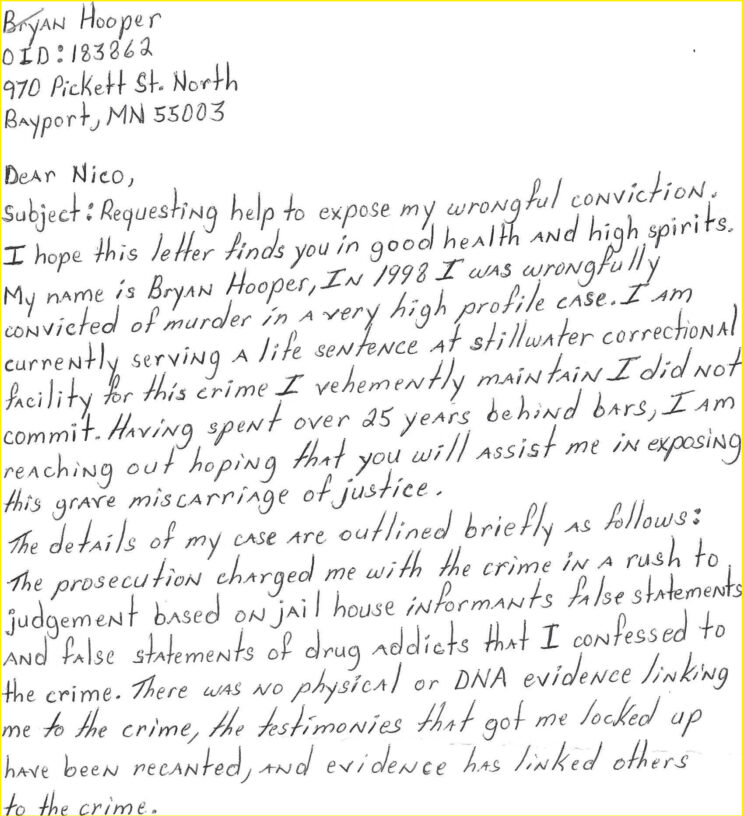 Bryan Hooper
OID: 183862
970 Pickett St. North
Bayport, MN 55003
Dear Nico,
Subject: Requesting help to expose my wrongful conviction.
I hope this letter finds you in good health and high spirits.
My name is Bryan Hooper, In 1998 I was wrongfully
convicted of murder in a very high profile case. I am
currently serving a life sentence at stillwater correctional
facility for this crime I vehemently maintain I did not
commit. Having spent over 25 years behind bars, I am
reaching out hoping that you will assist me in exposing
this grave miscarriage of justice.
The details of my case are outlined briefly as follows:
The prosecution charged me with the crime in a rush to
judgement based on jail house informants false statements
and false statements of drug addicts that I confessed to
the crime. There was no physical or DNA evidence linking
me to the crime, the testimonies that got me locked up
have been recanted, and evidence has linked others
to the crime.